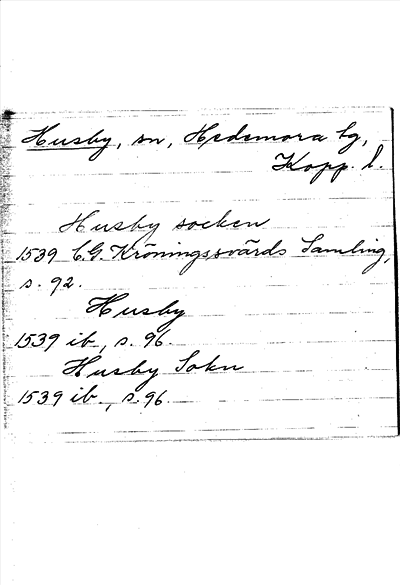 Husby, sn, Hedemora tg,
Kopp. l.
Husby socken
1539 C.G. Kröningssvärds Samling,
s. 92.
Husby
1539 ib., s. 96.
Husby Sokn
1539 ib., s. 96.